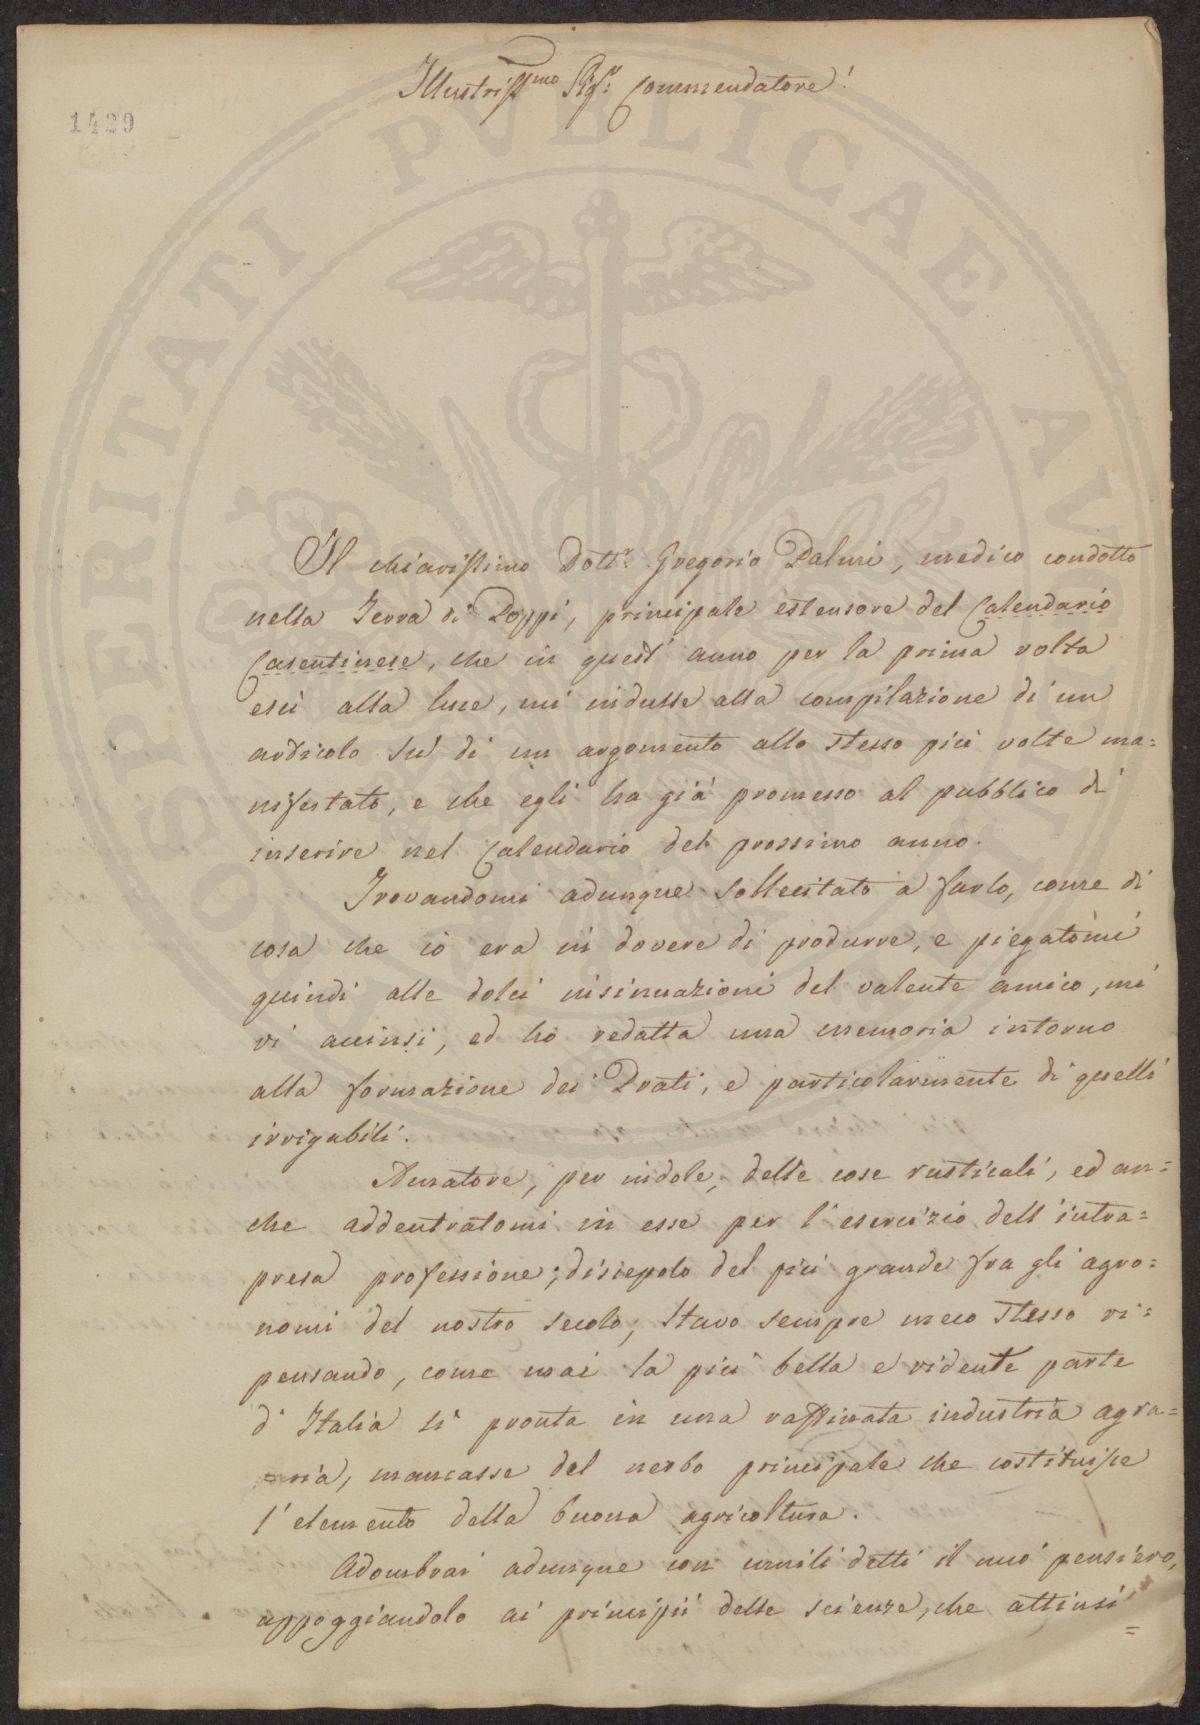 Illustrissmo Sigr: Commendatore!
1429
PROSPERITATI PVBLICAE AVGENDAE
Il chiarissimo Dottr: Gregorio Palmi, medico condotto
nella Terra di Poppi, principale estensore del Calendario
Casentinese, che in quest' anno per la prima volta
escì alla luce, mi indusse alla compilazione di un
articolo su di un argomento allo stesso più volte ma=
nifestato, e che egli ha già promesso al pubblico di
inserire nel Calendario del prossimo anno.
Trovandomi adunque sollecitato a farlo, come di
cosa che io era in dovere di produrre, e piegatomi
quindi alle dolci insinuazioni del valente amico, mi
vi accinsi, ed ho redatta una memoria intorno
alla formazione dei Prati, e particolarmente di quelli
irrigabili.
Amatore, per indole, delle cose rusticali, ed an=
che addentratomi in esse per l'esercizio dell'intra=
presa professione; discepolo del più grande fra gli agro=
nomi del nostro secolo; stavo sempre meco stesso ri=
pensando, come mai la più bella e ridente parte
d'Italia sì pronta in una raffinata industria agra=
=ria, mancasse del nerbo principale che costituisce
l'elemento della buona agricoltura.
Adombrai adunque con umili detti il mio pensiero,
appoggiandolo ai principii delle scienze, che attinsi
=